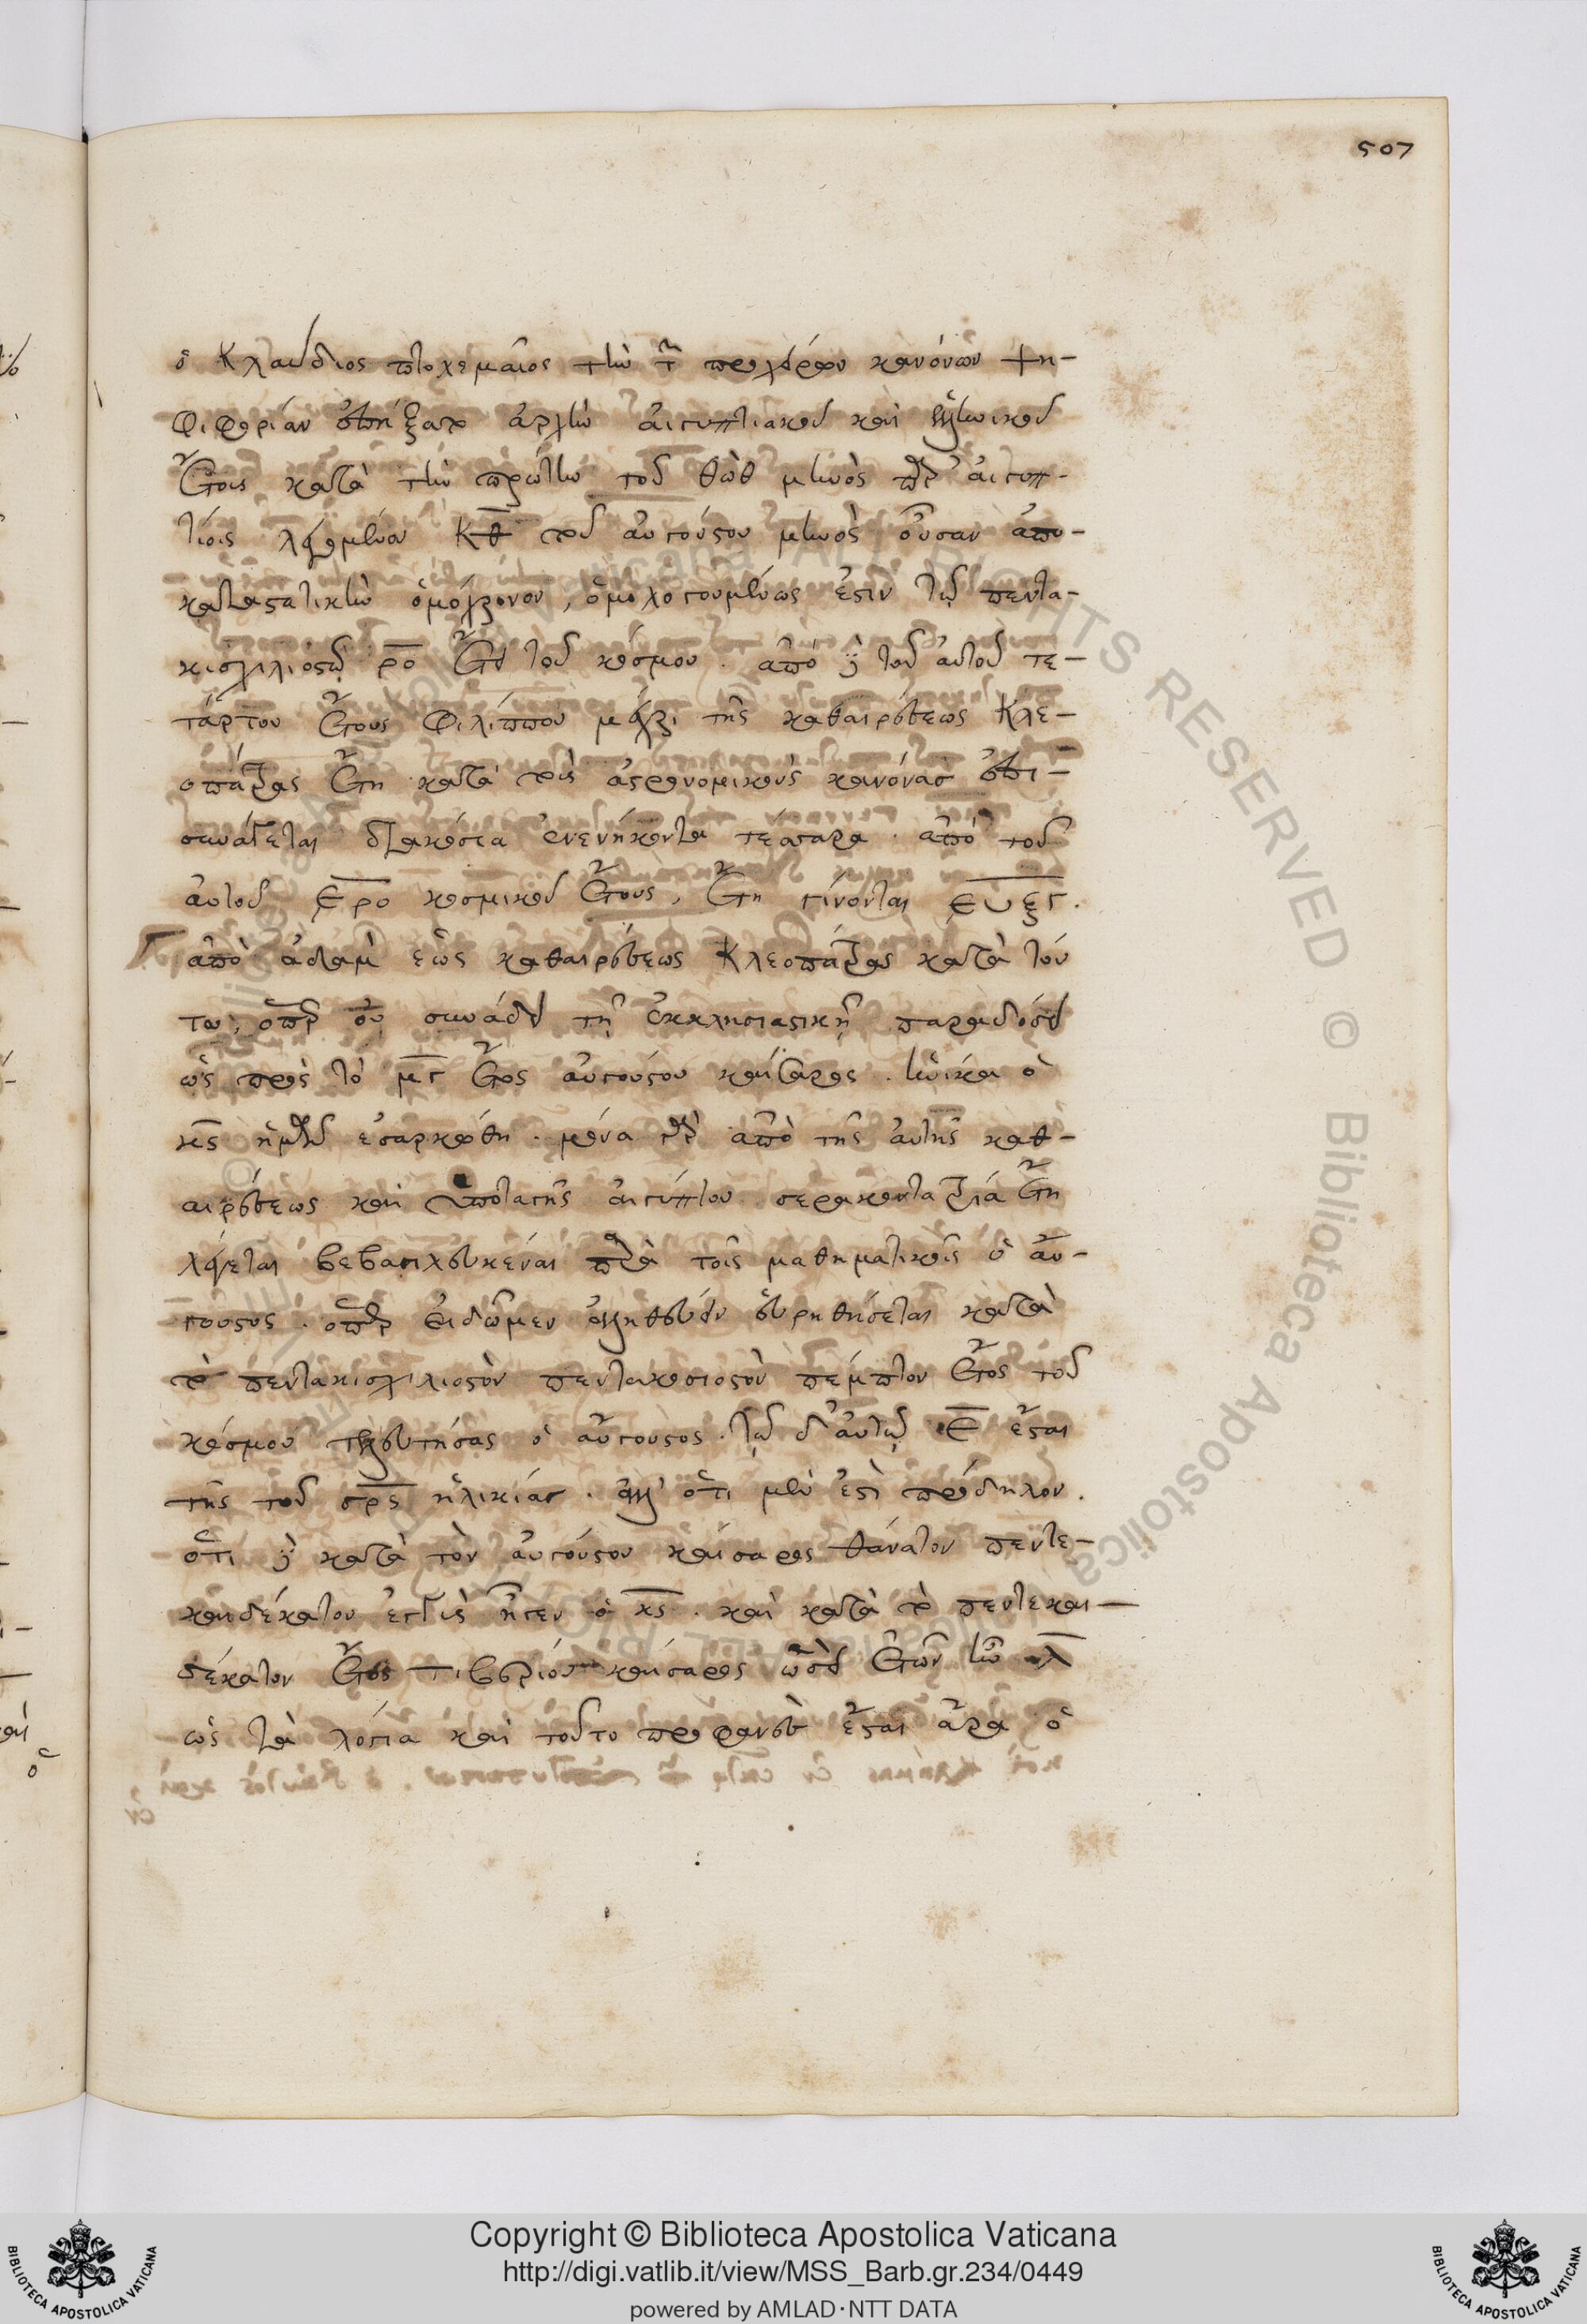 507
ὁ Κλαύδιος πτολεμαῖος τὴν τῶν προχείρων κανόνων ψη-
φιφορίαν ἐπήξατο ἀρχὴν αἰγυπτιακοῦ καὶ ἑλληνικοῦ
ἔτους κατὰ τὴν πρώτην τοῦ θὼθ μηνὸς παρ' αἰγυπ-
τίοις λεγομένου κθ τοῦ αὐγούστου μηνὸς οὖσαν ἀπο-
καταστατικὴν ὁμόχρονον, ὁμολογουμένως ἐστιν τῷ πεντα-
κισχιλιοστῷ ρο ἔτει τοῦ κόσμου. ἀπὸ δὲ τοῦ αὐτοῦ τε-
τάρτου ἔτους Φιλίππου μέχρι τῆς καθαιρέσεως Κλε-
οπάτρας ἔτη κατὰ τοὺς ἀστρονομικοὺς κανόνας ἐπι-
συνάγεται διακόσια ἐνενήκοντα τέσσαρα. ἀπὸ τοῦ
αὐτοῦ ερο κοσμικοῦ ἔτους, ἔτη γίνονται ευξγ.
ἀπὸ ἀδὰμ ἕως καθαιρέσεως Κλεοπάτρας κατὰ τοῦ-
το, ὅπερ οὐ συνάδει τῇ ἐκκλησιαστικῇ παραδόσει
ὡς πρὸς τὸ μγ ἔτος αὐγούστου καίσαρος. ἡνίκα ὁ
κς ἡμῶν ἐσαρκώθη. μόνα γὰρ ἀπὸ τῆς αὐτῆς καθ-
αιρέσεως καὶ ὑποταγῆς αἰγύπτου τεσσαράκοντα τρία ἔτη
λέγεται βεβασιλευκέναι παρὰ τοῖς μαθηματικοῖς ὁ αὔ-
γουστος. ὅπερ εἰ δῶμεν ἀληθεύειν εὑρηθήσεται κατὰ
τὸ πεντακισχιλιοστὸν πεντακοσιοστὸν πέμπτον ἔτος τοῦ
κόσμου τελευτήσας ὁ αὔγουστος. τῷ δ' αὐτῷ ε ἔσται
τῆς τοῦ σρς ἡλικίας. ἀλλ' ὅτι μὲν ἐστὶ πρόδηλον.
ὅτι δὲ κατὰ τὸν αὐγούστου καίσαρος θάνατον πεντε-
καιδέκατον ἔτος ἦγεν ὁ κς. καὶ κατὰ τὸ πεντεκαι-
δέκατον ἔτος τιβερίου καίσαρος ὡσεὶ ἐτῶν ἦν λ
ὡς τὰ λόγια καὶ τοῦτο προφανὲς ἔσται ἄρα ὁ